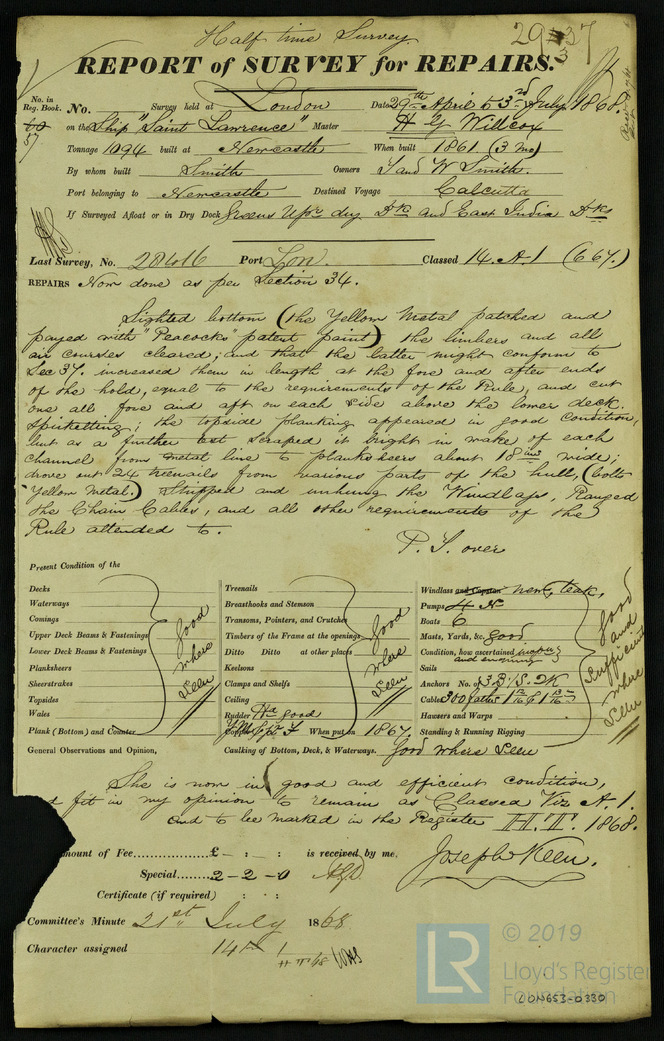 Half time Survey.
29 37
REPORT of SURVEY for REPAIRS.
No. in Reg. Book. No. Survey held at London Date 29th April & 3rd July 1868
60
57
on the Ship "Saint Lawrence" Master H G Willcox
Tonnage 1094 built at Newcastle When built 1861 (3 mo)
By whom built Smith Owners T and W Smith.
Port belonging to Newcastle Destined Voyage Calcutta
If Surveyed Afloat or in Dry Dock Greens Upr dry Dk and East India Dks
Last Survey, No. 28416 Port Lon. Classed 14. A. 1 (6 67.)
REPAIRS Now done as per Section 34.
Sighted bottom (the Yellow Metal patched and
payed with "Peacocks" patent paint) the limbers and all
air courses cleared; and that the latter might conform to
Sec 37. increased them in length at the fore and after ends
of the hold, equal to the requirements of the Rule, and cut
one all fore and aft on each side above the lower deck
Spirketting; the topside planking appeared in good condition,
but as a further test scraped it bright in wake of each
channel from metal line to plankshears about 18 ins wide;
drove out 24 treenails from various parts of the hull, (bolts
Yellow Metal.) Stripped and unhung the Windlass, Ranged
the Chain Cables, and all other requirements of the
Rule attended to.
P. T. over
Present Condition of the
Decks
Waterways
Comings
Upper Deck Beams & Fastenings
Lower Deck Beams & Fastenings
Planksheers
Sheerstrakes
Topsides
Wales
Plank (Bottom) and Counter
good where seen
Treenails
Breasthooks and Stemson
Transoms, Pointers, and Crutches
Timbers of the Frame at the openings
Ditto Ditto at other places
Keelsons
Clamps and Shelfs
Ceiling
good where seen
Rudder Ha good
Copper When put on 1867.
Windlass and Capstan new, teak,
Pumps 4
Boats 6
Masts, Yards, &c. good
Condition, how ascertained
Sails
Anchors No. of 3 B; 1 S. 2 K
Cables 300 faths 1 13/16
Hawsers and Warps
Standing & Running Rigging
good and sufficient where seen
General Observations and Opinion, Caulking of Bottom, Deck, & Waterways. Good where seen
She is now in good and efficient condition,
fit in my opinion to remain as Classed Viz A. 1.
and to be marked in the Register H. T. 1868.
mount of Fee £ - : : is received by me,
Joseph Keen.
Special 2 - 2 - 0
Certificate (if required) : :
Committee's Minute 21st July 1868
Character assigned 14 A 1
© 2019
LR
Lloyd's Register
Foundation
LON653-0330